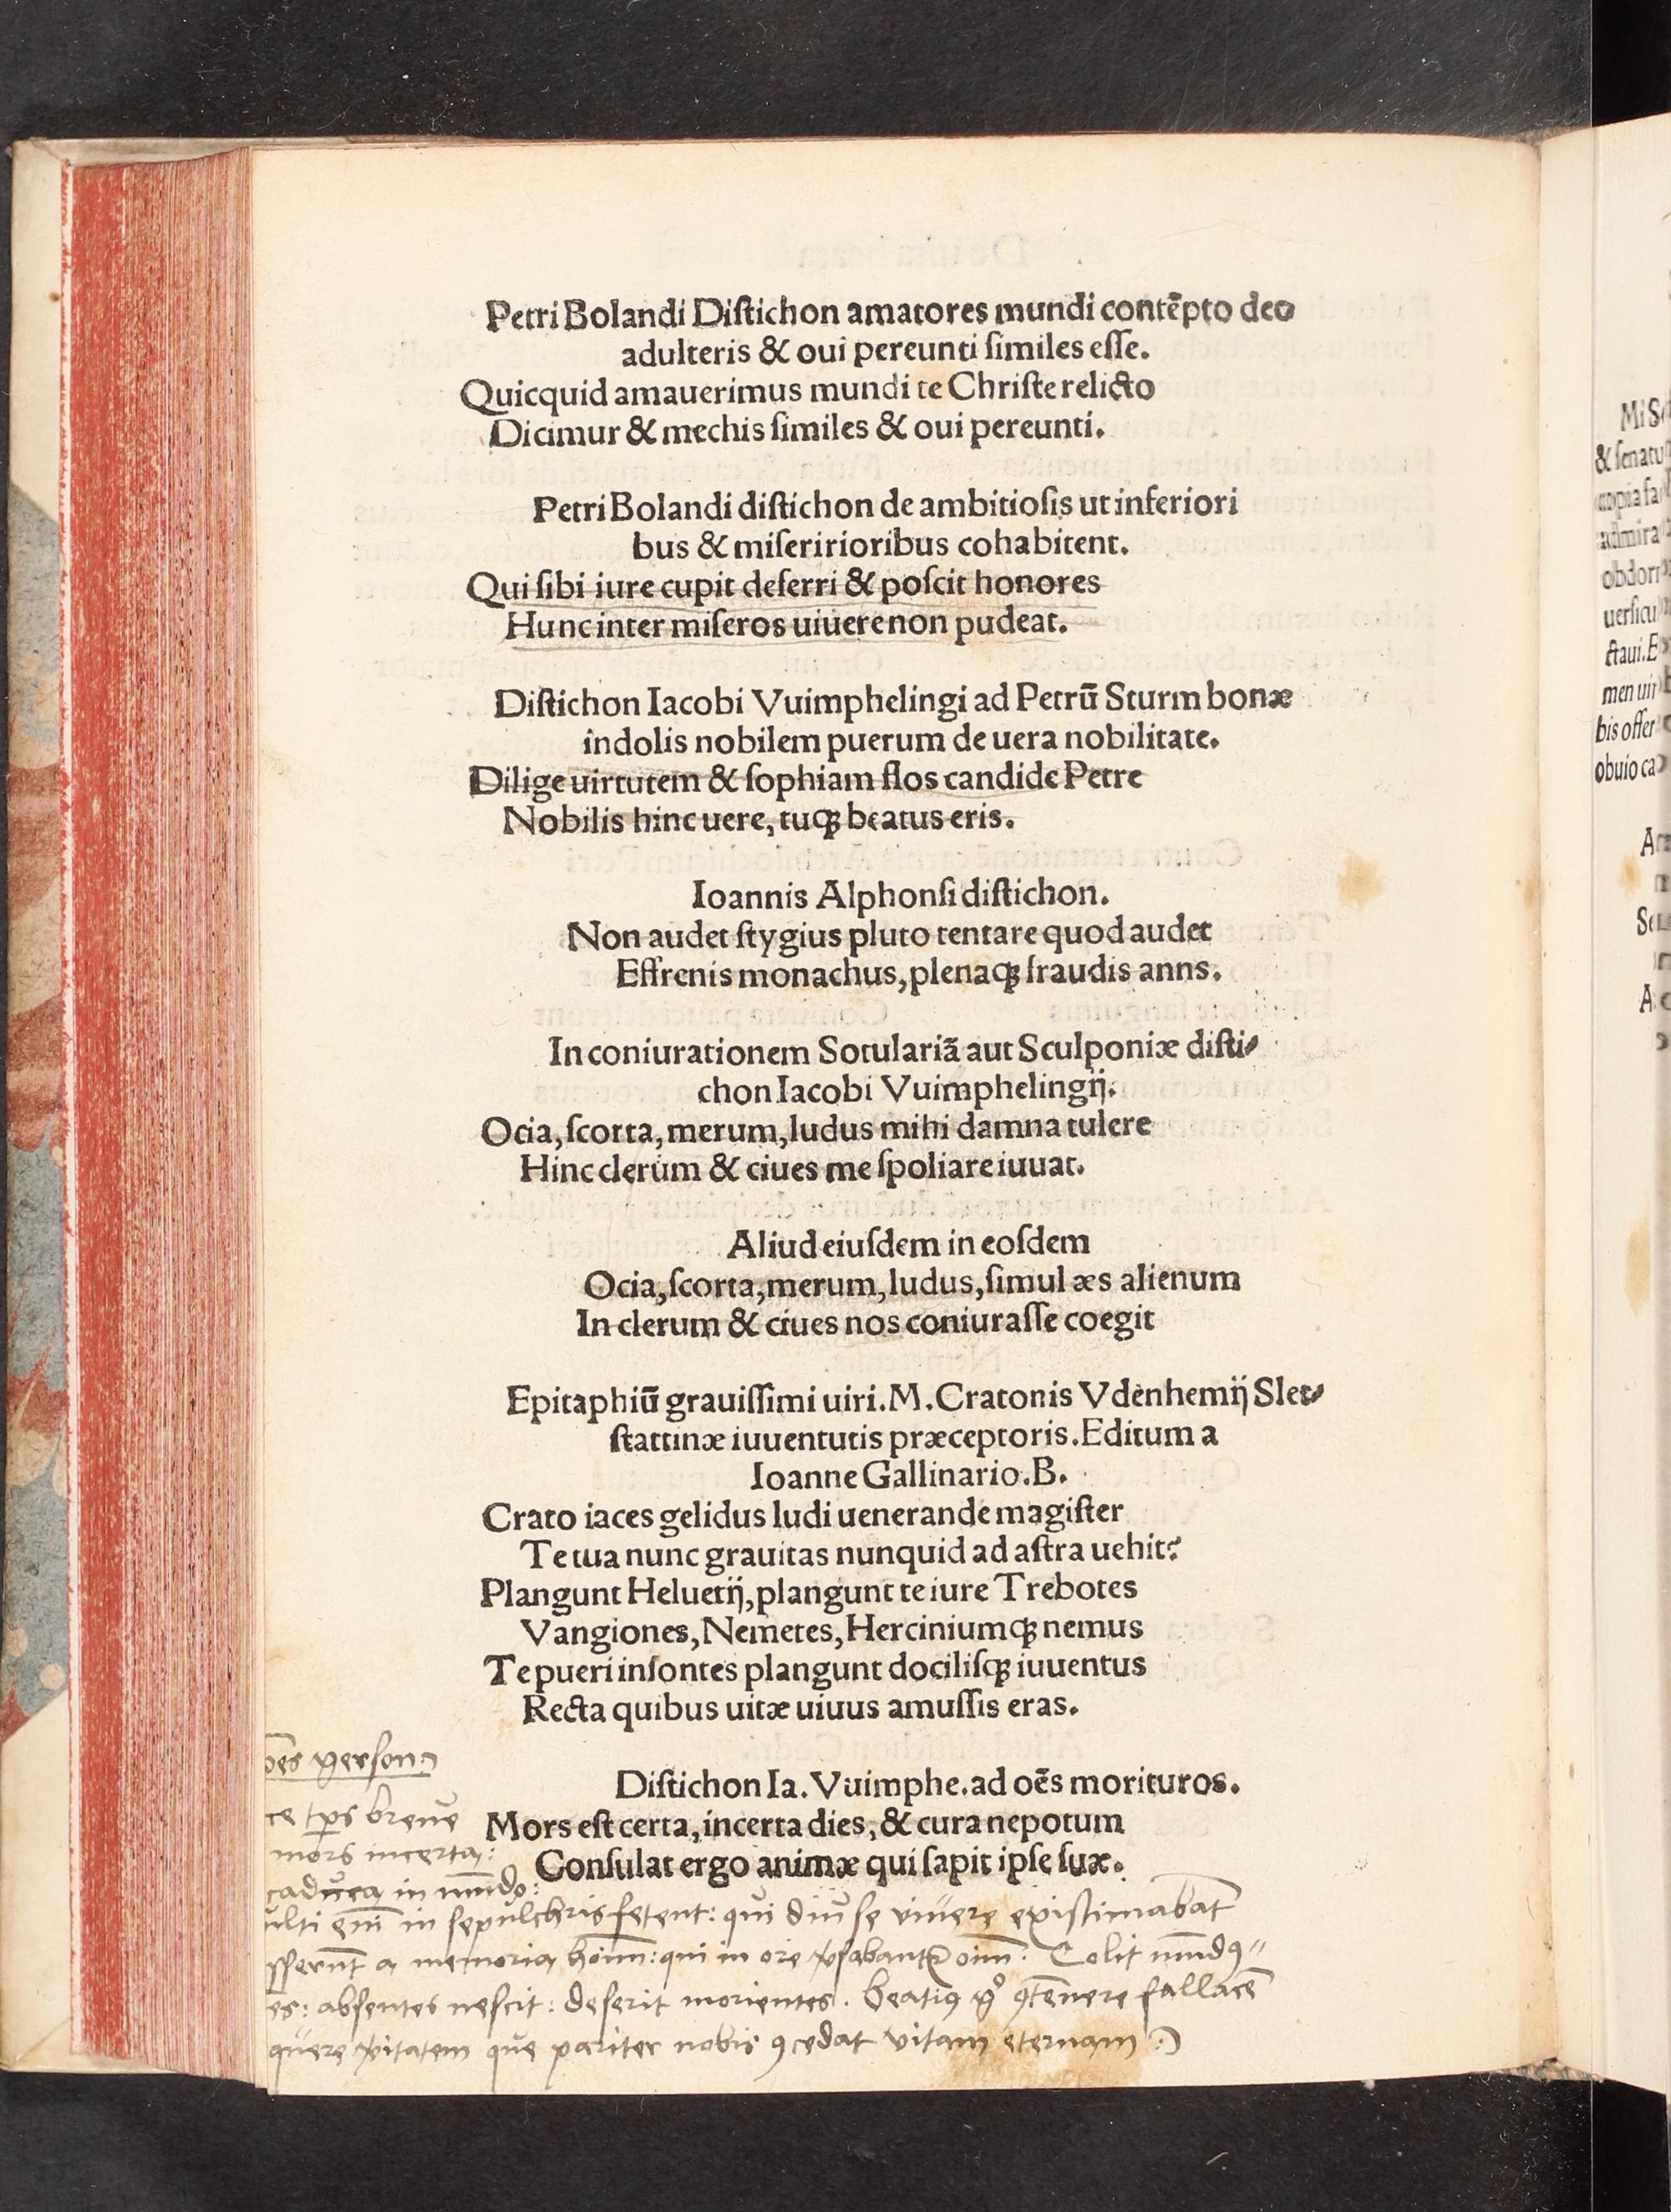 Petri Bolandi Distichon amatores mundi contẽpto deo
adulteris & oui pereunti similes esse.
Quicquid amauerimus mundi te Christe relicto
Dicimur & mechis similes & oui pereunti.
Petri Bolandi distichon de ambitiosis ut inferiori
bus & miseririoribus cohabitent.
Qui sibi iure cupit deferri & poscit honores
Hunc inter miseros uiuere non pudeat.
Distichon Iacobi Vuimphelingi ad Petrũ Sturm bonæ
indolis nobilem puerum de uera nobilitate.
Dilige uirtutem & sophiam flos candide Petre
Nobilis hinc uere, tuqꝫ beatus eris.
Ioannis Alphonsi distichon.
Non audet stygius pluto tentare quod audet
Effrenis monachus, plenaqꝫ fraudis anns.
In coniurationem Sotulariã aut Sculponiæ disti⸗
chon Iacobi Vuimphelingij.
Ocia, scorta, merum, ludus mihi damna tulere
Hinc clerum & ciues me spoliare iuuat.
Aliud eiusdem in eosdem
Ocia, scorta, merum, ludus, simul æs alienum
In clerum & ciues nos coniurasse coegit
Epitaphiũ grauissimi uiri. M. Cratonis Vdenhemij Slet⸗
stattinæ iuuentutis præceptoris. Editum a
Ioanne Gallinario. B.
Crato iaces gelidus ludi uenerande magister
Te tua nunc grauitas nunquid ad astra uehit?
Plangunt Heluetij, plangunt te iure Trebotes
Vangiones, Nemetes, Herciniumqꝫ nemus
Te pueri insontes plangunt docilisqꝫ iuuentus
Recta quibus uitæ uiuus amussis eras.
Distichon Ia. Vuimphe. ad oẽs morituros.
Mors est certa, incerta dies, & cura nepotum
Consulat ergo animæ qui sapit ipse suæ.
tp̃s breue
mors incerta:
caduca in mũdo:
ulti em̃ in sepulchris fetent: qui diu se viuere existimabãt
a memoria hoim̃: qui in ore oim̃: Tolit mũdꝰ
es: absentes nescit: deserit morientes. Beatiꝰ gͦ ꝯtẽnere fallacẽ
que pariter nobis ꝯcedat vitam eternam